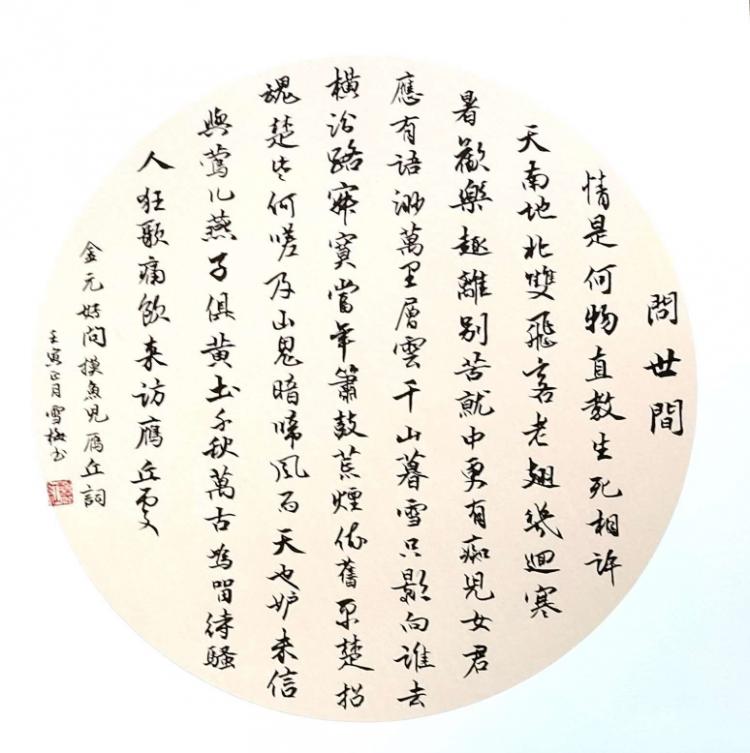 問世間
情是何物直教生死相許
天南地北雙飛客老翅幾迴寒
暑歡樂趣離別苦就中更有痴兒女君
應有語渺萬里層雲千山暮雪只影向誰去
橫汾路寂寞當年簫鼓荒煙依舊平楚招
魂楚些何嗟及山鬼暗啼風雨天也妒未信
與鶯兒燕子俱黃土千秋萬古為留待騷
人狂歌痛飲來訪鴈丘處
金元好問摸魚兒鴈丘詞
壬寅正月雪梅书